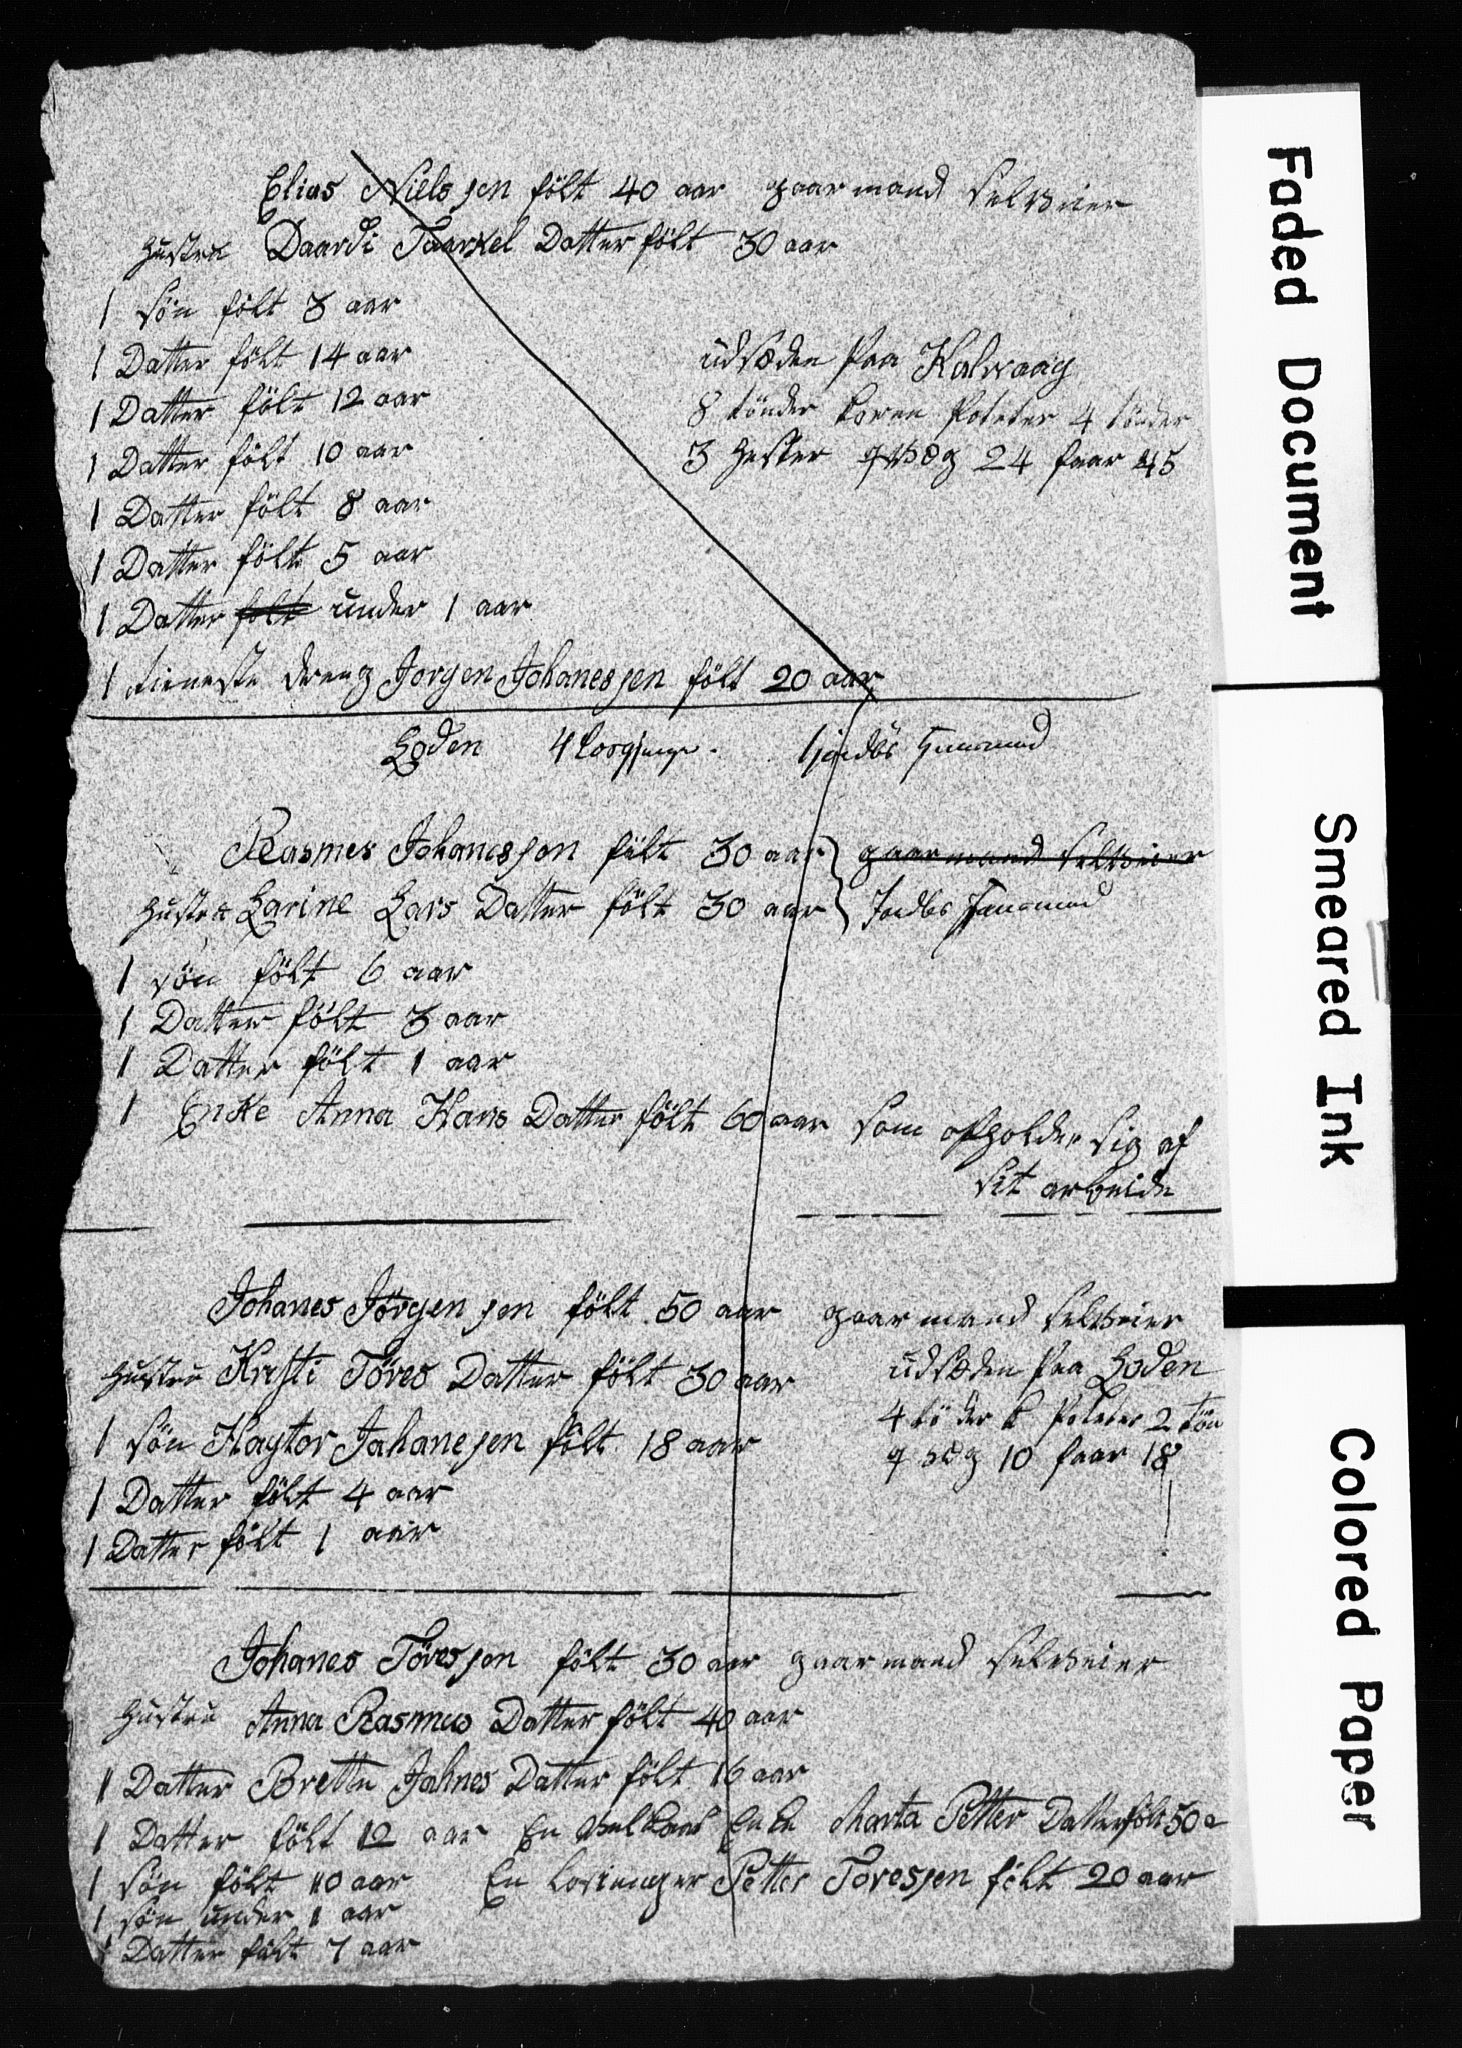 Elias Nielssen fölt 40 aar gaarmand selveier
Hustru Daardi Taarkel Datter fölt 30 aar
1 søn fölt 3 aar
1 Datter fölt 14 aar
1 Datter fölt 12 aar
1 Datter fölt 10 aar
1 Datter fölt 8 aar
1 Datter fölt 5 aar
1 Datter fölt under 1 aar
1 tieneste dreng Jorgen Johanessen fölt 20 aar
udsæden Paa Kalvaag
8 tönder koren Poteter 4 tönder
3 Hester qvæg 24 faar 45
Loden 4 1 jordbs Huusmand
Rasmes Johanessen fölt 30 aar gaarmand selveier
Hustru Larine Lars Datter fölt 30 aar Jordbs Huusmand
1 søn fölt 6 aar
1 Datter fölt 3 aar
1 Datter fölt 1 aar
1 Enke Anna Hans Datter fölt 60 aar som opholder sig af
sit arbeide
Johanes Jörgensen fölt 50 aar gaarmand selveier
Hustru Kristi Töres Datter fölt 30 aar
1 søn Haytor Johanesen fölt 18 aar
1 Datter fölt 4 aar
1 Datter fölt 1 aar
udsæden Paa Loden
4 tö der k Poteter 2 tön
q væg 10 faar 18
Johanes Töressen fölt 30 aar gaarmand selveier
Hustru Anna Rasmus Datter fölt 40 aar
1 Datter Brettu Jahnes Datter fölt 16 aar
1 Datter fölt 12 aar En Enke Marta Petter Datter fölt 50 a
1 søn fölt 10 aar En losiunger Petter Toressen fölt 20 aar
1 søn under 1 aar
1 Datter fölt 7 aar
Faded Document
Smeared Ink
Colored Paper